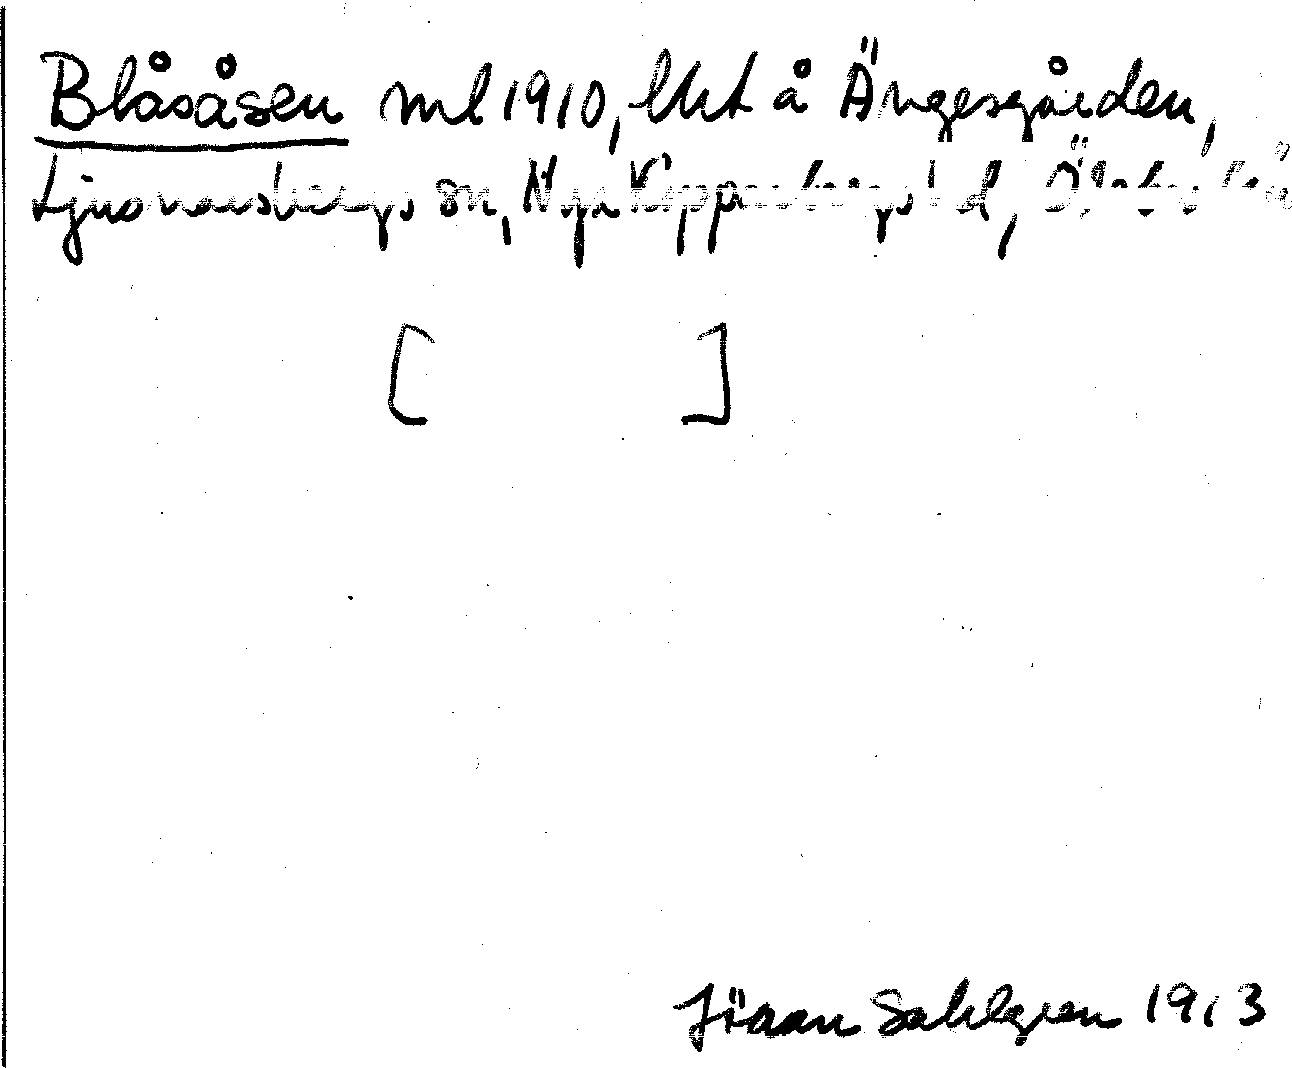 Blåsåsen ml 1910, lht å Ängesgården,
Ljusnarsbergs sn, Nya Kopparbergs hd, Örebro län
[ ]
Jöran Sahlgren 1913